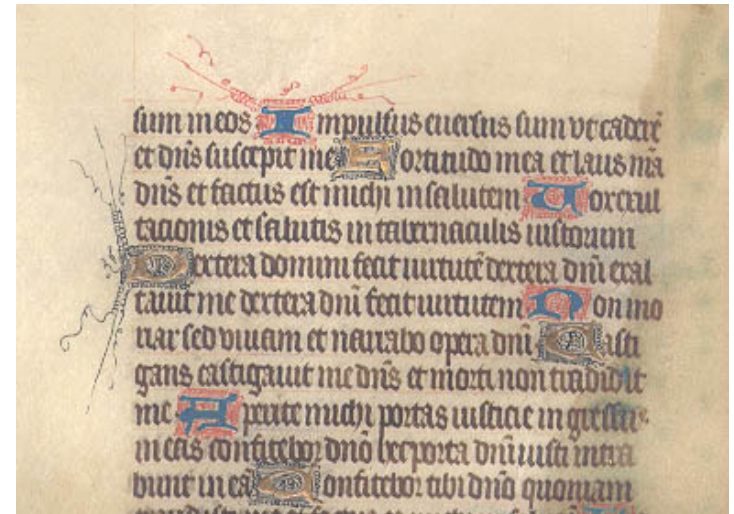 sum in eos Impulsus euersus sum vt caderē
et dn̄s suscepit me Fortitudo mea et laus m̄a
dn̄s et factus est michi in salutem Vox exul
tacionis et salutis in tabernaculis iustorum
Dextera domini fecit uirtutē dextera dn̄i exal
tauit me dextera dn̄i fecit uirtutem Non mo
riar sed viuam et narrabo opera dn̄i Casti
gans castigauit me dn̄s et morti non tradidit
me Aperite michi portas iusticie ingressus
in eas confitebor dn̄o hec porta dn̄i iusti intra
bunt in eā Confitebor tibi dn̄e quoniam